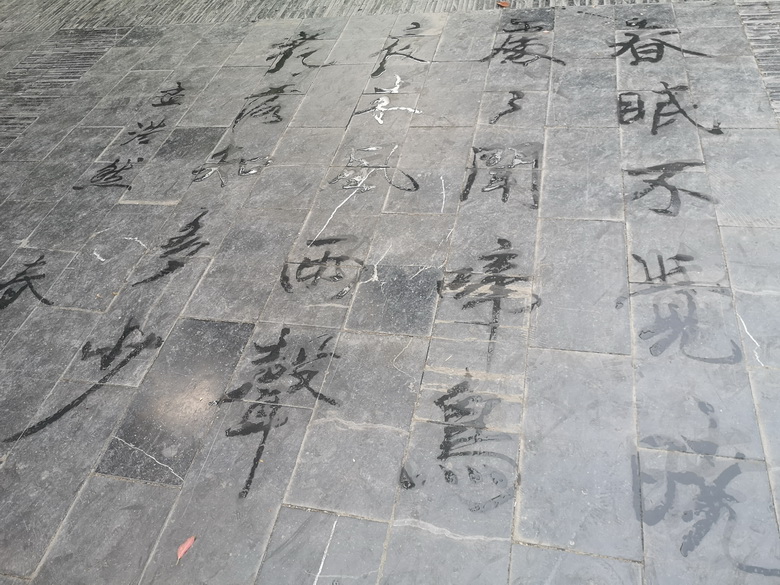 春眠不覺曉
處々聞啼鳥
夜来風雨聲
花落知多少
孟浩然